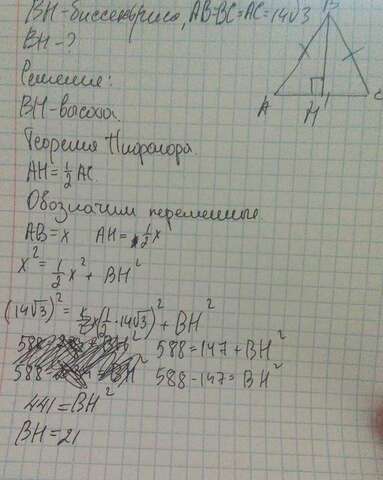 BH-биссектриса, AB=BC=AC=14√3
BH-?
B
A
H
C
Решение:
BH-высота.
Теорема Пифагора.
AH=1/2 AC.
Обозначим переменные.
AB=x AH=1/2x
x²=1/2x²+BH²
(14√3)²=(1/2·14√3)²+BH²
588=147+BH²
588-147=BH²
441=BH²
BH=21